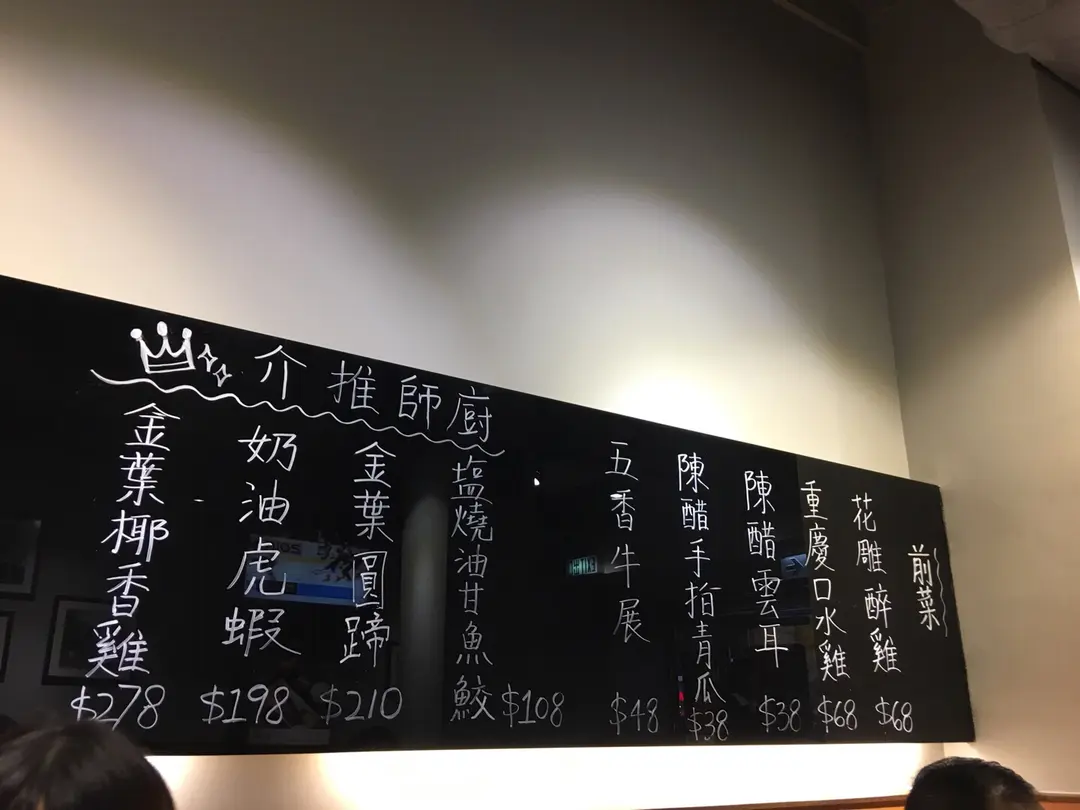 前菜
花雕醉雞
$68
重慶口水雞
$68
陳醋雲耳
$38
陳醋手拍青瓜
$38
五香牛展
$48
廚師推介
塩燒油甘魚鮫
$108
金葉圓蹄
$210
奶油虎蝦
$198
金葉椰香雞
$278